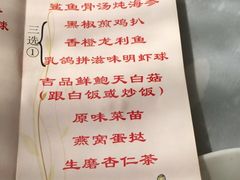 鲨鱼骨汤炖海参
三选①
黑椒煎鸡扒
香橙龙利鱼
乳鸽拼滋味明虾球
吉品鲜鲍天白菇
(跟白饭或炒饭)
原味菜苗
燕窝蛋挞
生磨杏仁茶